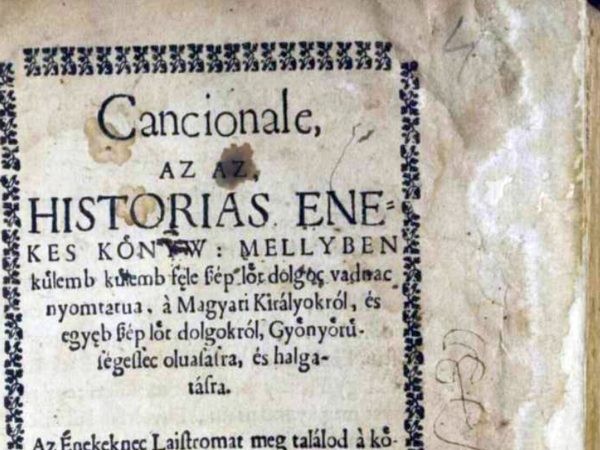 Cancionale,
AZ AZ,
HISTORIAS ENE-
KES KÖNYW: MELLYBEN
kúlemb kúlemb féle ßép löt dolgoc vadnac
nyomtatua, à Magyari Királyokról, és
egyéb ßép löt dolgokról, Gyönyörű-
ségeslec oluasásra, és halga-
tásra.
Az Énekeknec Laistromat meg találod à kö-